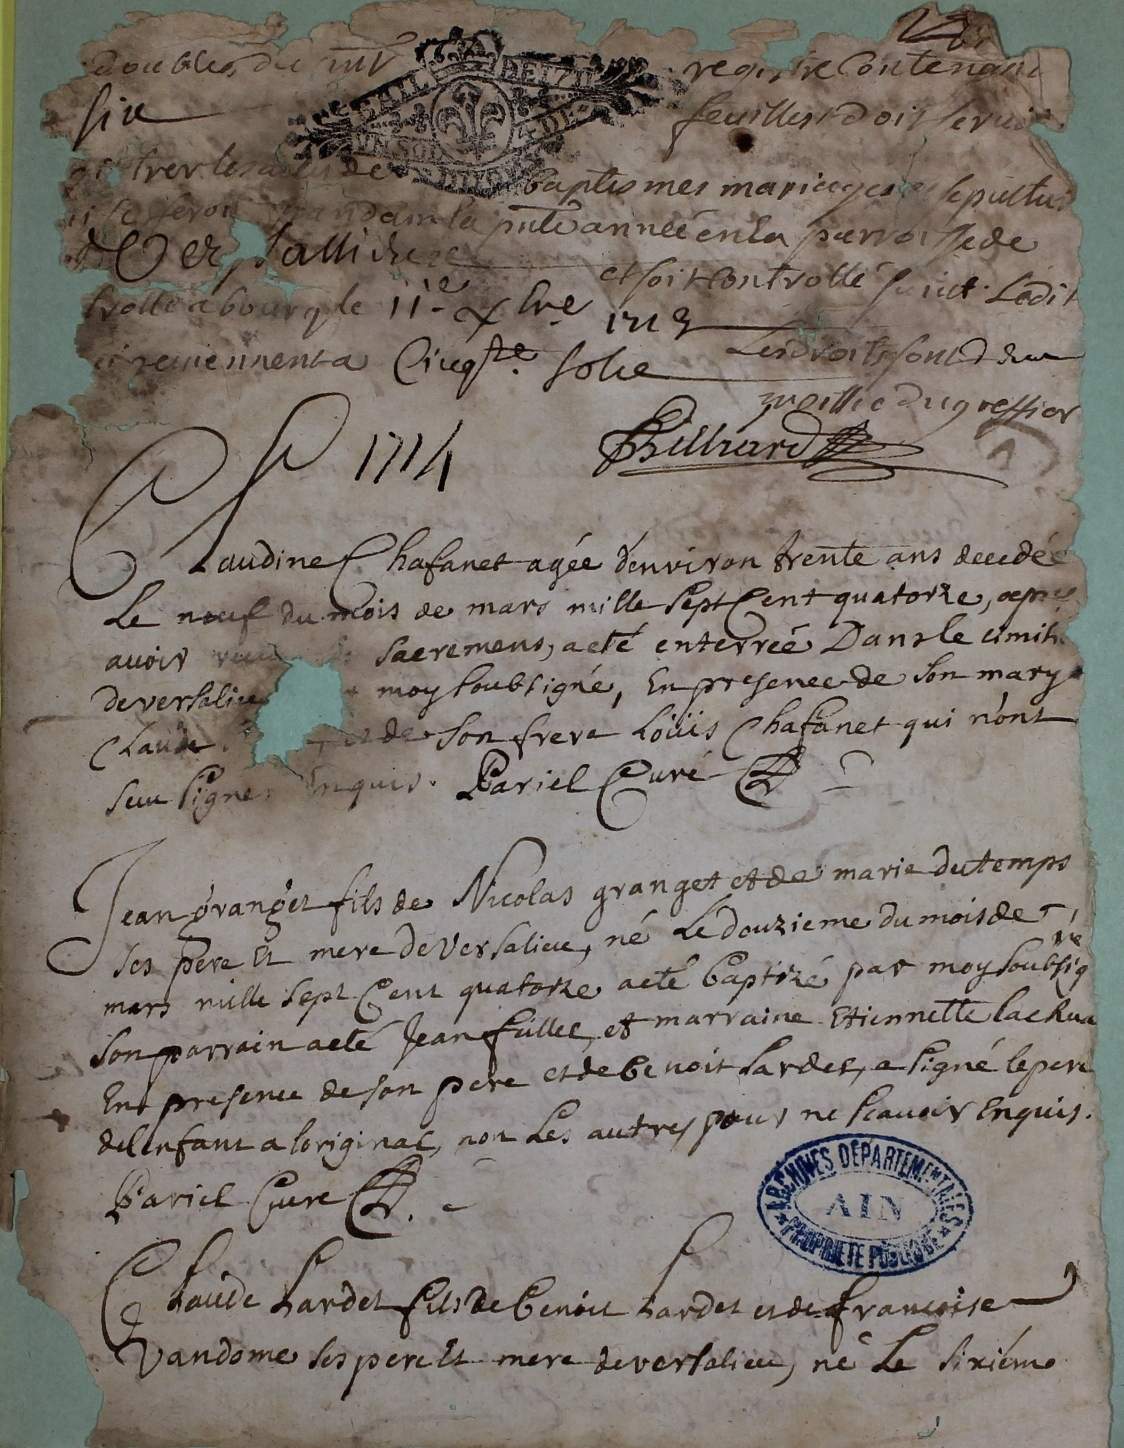 doubles du
registre Contenant
six feuillets doit servir
baptesmes mariages et sepultu
pendant la pnte année en la parroisse de
Versallieu
et soit Controllé suivt. L'édit
trollé a bourg le 11e. xbre 1713
Les droits sont deu
reviennent a Cinqte. sols
moitié du greffier
Billiard
1714
Claudine Chafanet agée d'environ trente ans decedée
Le neuf du mois de mars mille sept Cent quatorze, apres
avoir sacremens, a eté enterrée Dans le cimiti
de versalieu moy soubsigné, En presence de son mary
Claude et de son frere Loüis Chafanet qui n'ont
sceu signer Enquis. Pariel Curé
Jean granget fils de Nicolas granget et de marie dutemps
ses pere Et mere de Versalieu, né Le douzieme du mois de
mars mille sept Cent quatorze a eté baptizé par moy soubsigné
son parrain a eté Jean fullier et marraine Etiennette
En presence de son pere et de benoit Lardet, a signé le pere
de l'enfant a l'original, non Les autres pour ne scavoir Enquis.
Pariel Curé
ARCHIVES DÉPARTEMENTALES
AIN
PROPRIÉTÉ PUBLIQUE
Claude Lardet fils de benoit Lardet et de francoise
Vandome ses pere Et mere de versalieu, né Le sixiéme